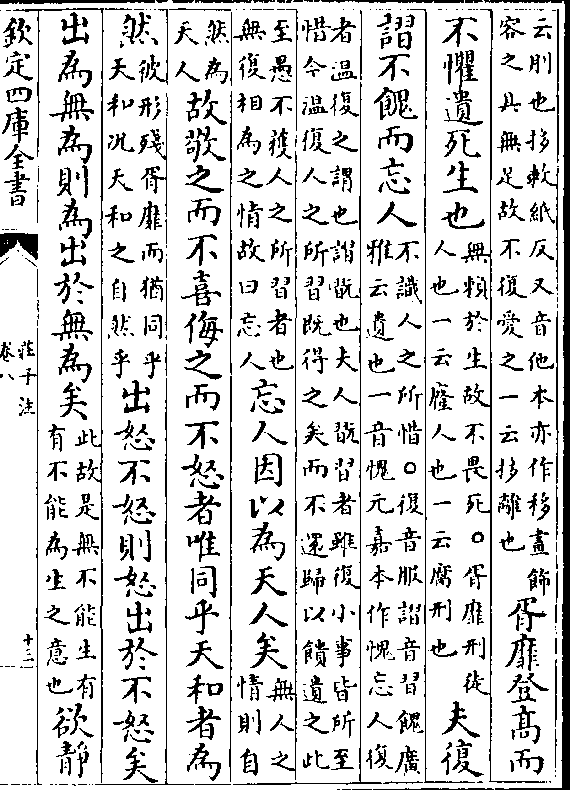 云刖也拸敕紙反又音他本亦作移畫飾
容之具無足故不復愛之一云拸離也
胥靡登高而
不懼遺死生也
無賴於生故不畏死○胥靡刑徒
人也一云癃人也一云腐刑也
夫復
謵不餽而忘人
不識人之所惜○復音服謵音習餽廣
雅云遺也一音愧元嘉本作愧忘人復
者温復之謂也謵翫也夫人翫習者雖復小事皆所至
惜今温復人之所習既得之矣而不還歸以饋遺之此
至愚不獲人之所習者也
無復相為之情故曰忘人
忘人因以為天人矣
無人之
情則自
然為
天人
故敬之而不喜侮之而不怒者唯同乎天和者為
然
彼形殘胥靡而猶同乎
天和況天和之自然乎
出怒不怒則怒出於不怒矣
出為無為則為出於無為矣
此故是無不能生有
有不能為生之意也
欲静
欽定四庫全書
莊子注
卷八
十三